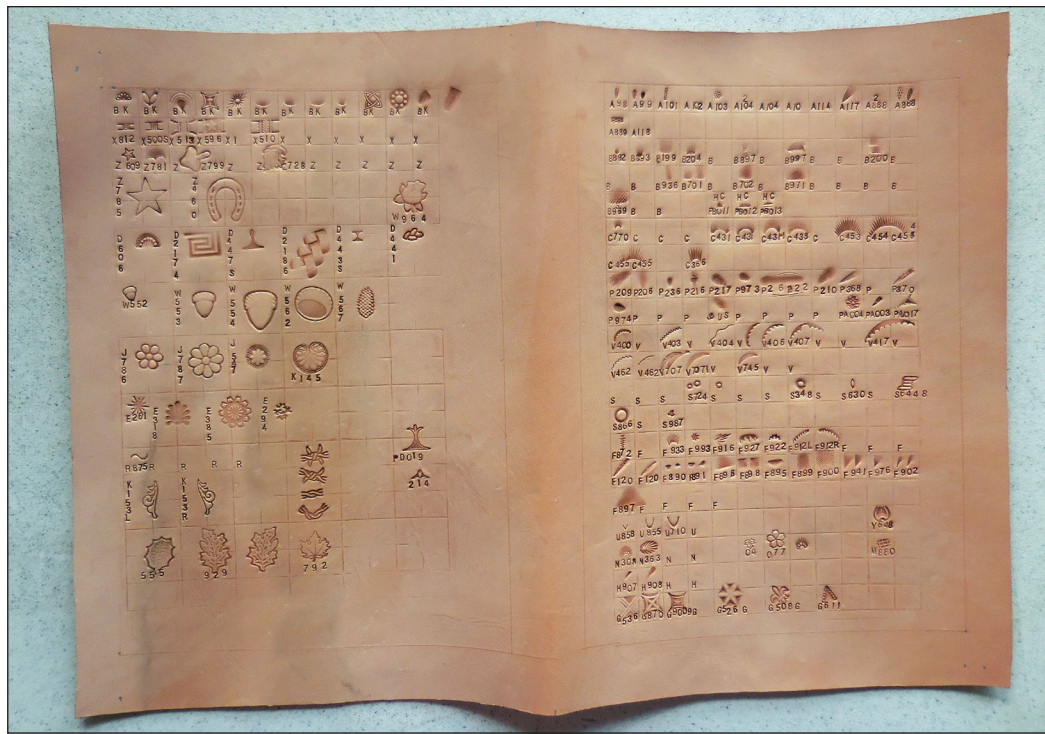 BK BK BK BK BK BK BK BK BK BK BK BK
X812 X500S X513 X596 X1 X510 X X X X X
Z609 Z781 Z Z799 Z Z C728 Z Z Z Z Z
Z785 Z460 W964
D606 D2174 D447S D2186 D443S D441
W552 W553 W554 W562 W567
J786 J787 J527 K145
E261 E318 E385 E294
R875 R R R R PD019
K153L K153R 214
555 929 792
A98 A99 A101 A102 A103 A104 A104 A10 A114 A117 A888 A888
A889 A118
B892 B893 B199 B204 B B897 B B997 B B B200 B
B B B936 B701 B B702 B B971 B B B B
B969 B B HC PB011 HC PB012 HC PB013
C770 C C C C431 C431 C431 C433 C C453 C454 C455
C455 C455 C366
P209 P206 P236 P216 P217 P973 P26 P222 P210 P368 P P370
P974 P P P P P P P PA004 PA003 PA017
V400 V V403 V V404 V V406 V407 V V V417 V
V462 V462 V707 V707 V745 V V
S S S S724 S S S S348 S S630 S S S644 S
S866 S S987
F872 F F933 F993 F916 F927 F922 F912L F912R F F F
F120 F120 F890 F891 F896 F898 F895 F899 F900 F941 F976 F902
F897 F F F F
U858 U855 U710 U Y648
N304 N363 N N 04 077 M880
H907 H908 H H
G536 G870 G9009G G526 G G508 G G611